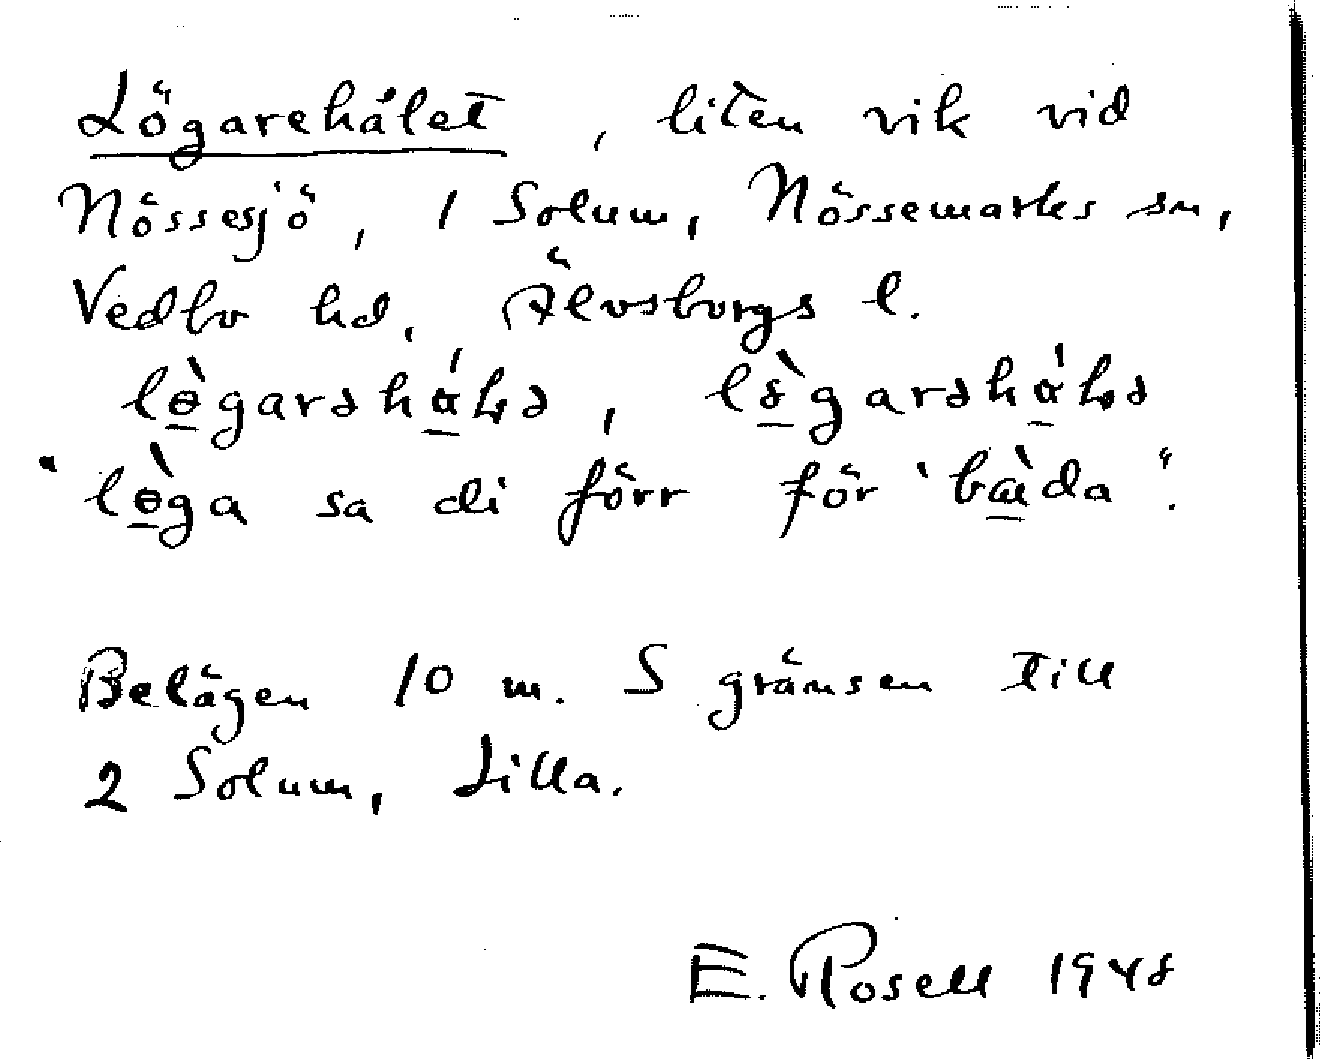 Lögarehålet, liten vik vid
Nössesjö, 1 Solum, Nössemarks sn,
Vedbo hd, Älvsborgs l.
lɵ̀garəhα̍ɫə, lꞩ̀garəhα̍ɫə
"lɵ̀ga sa di förr för 'bæ̀da".
Belägen 10 m. S gränsen till
2 Solum, Lilla.
E. Rosell 1948